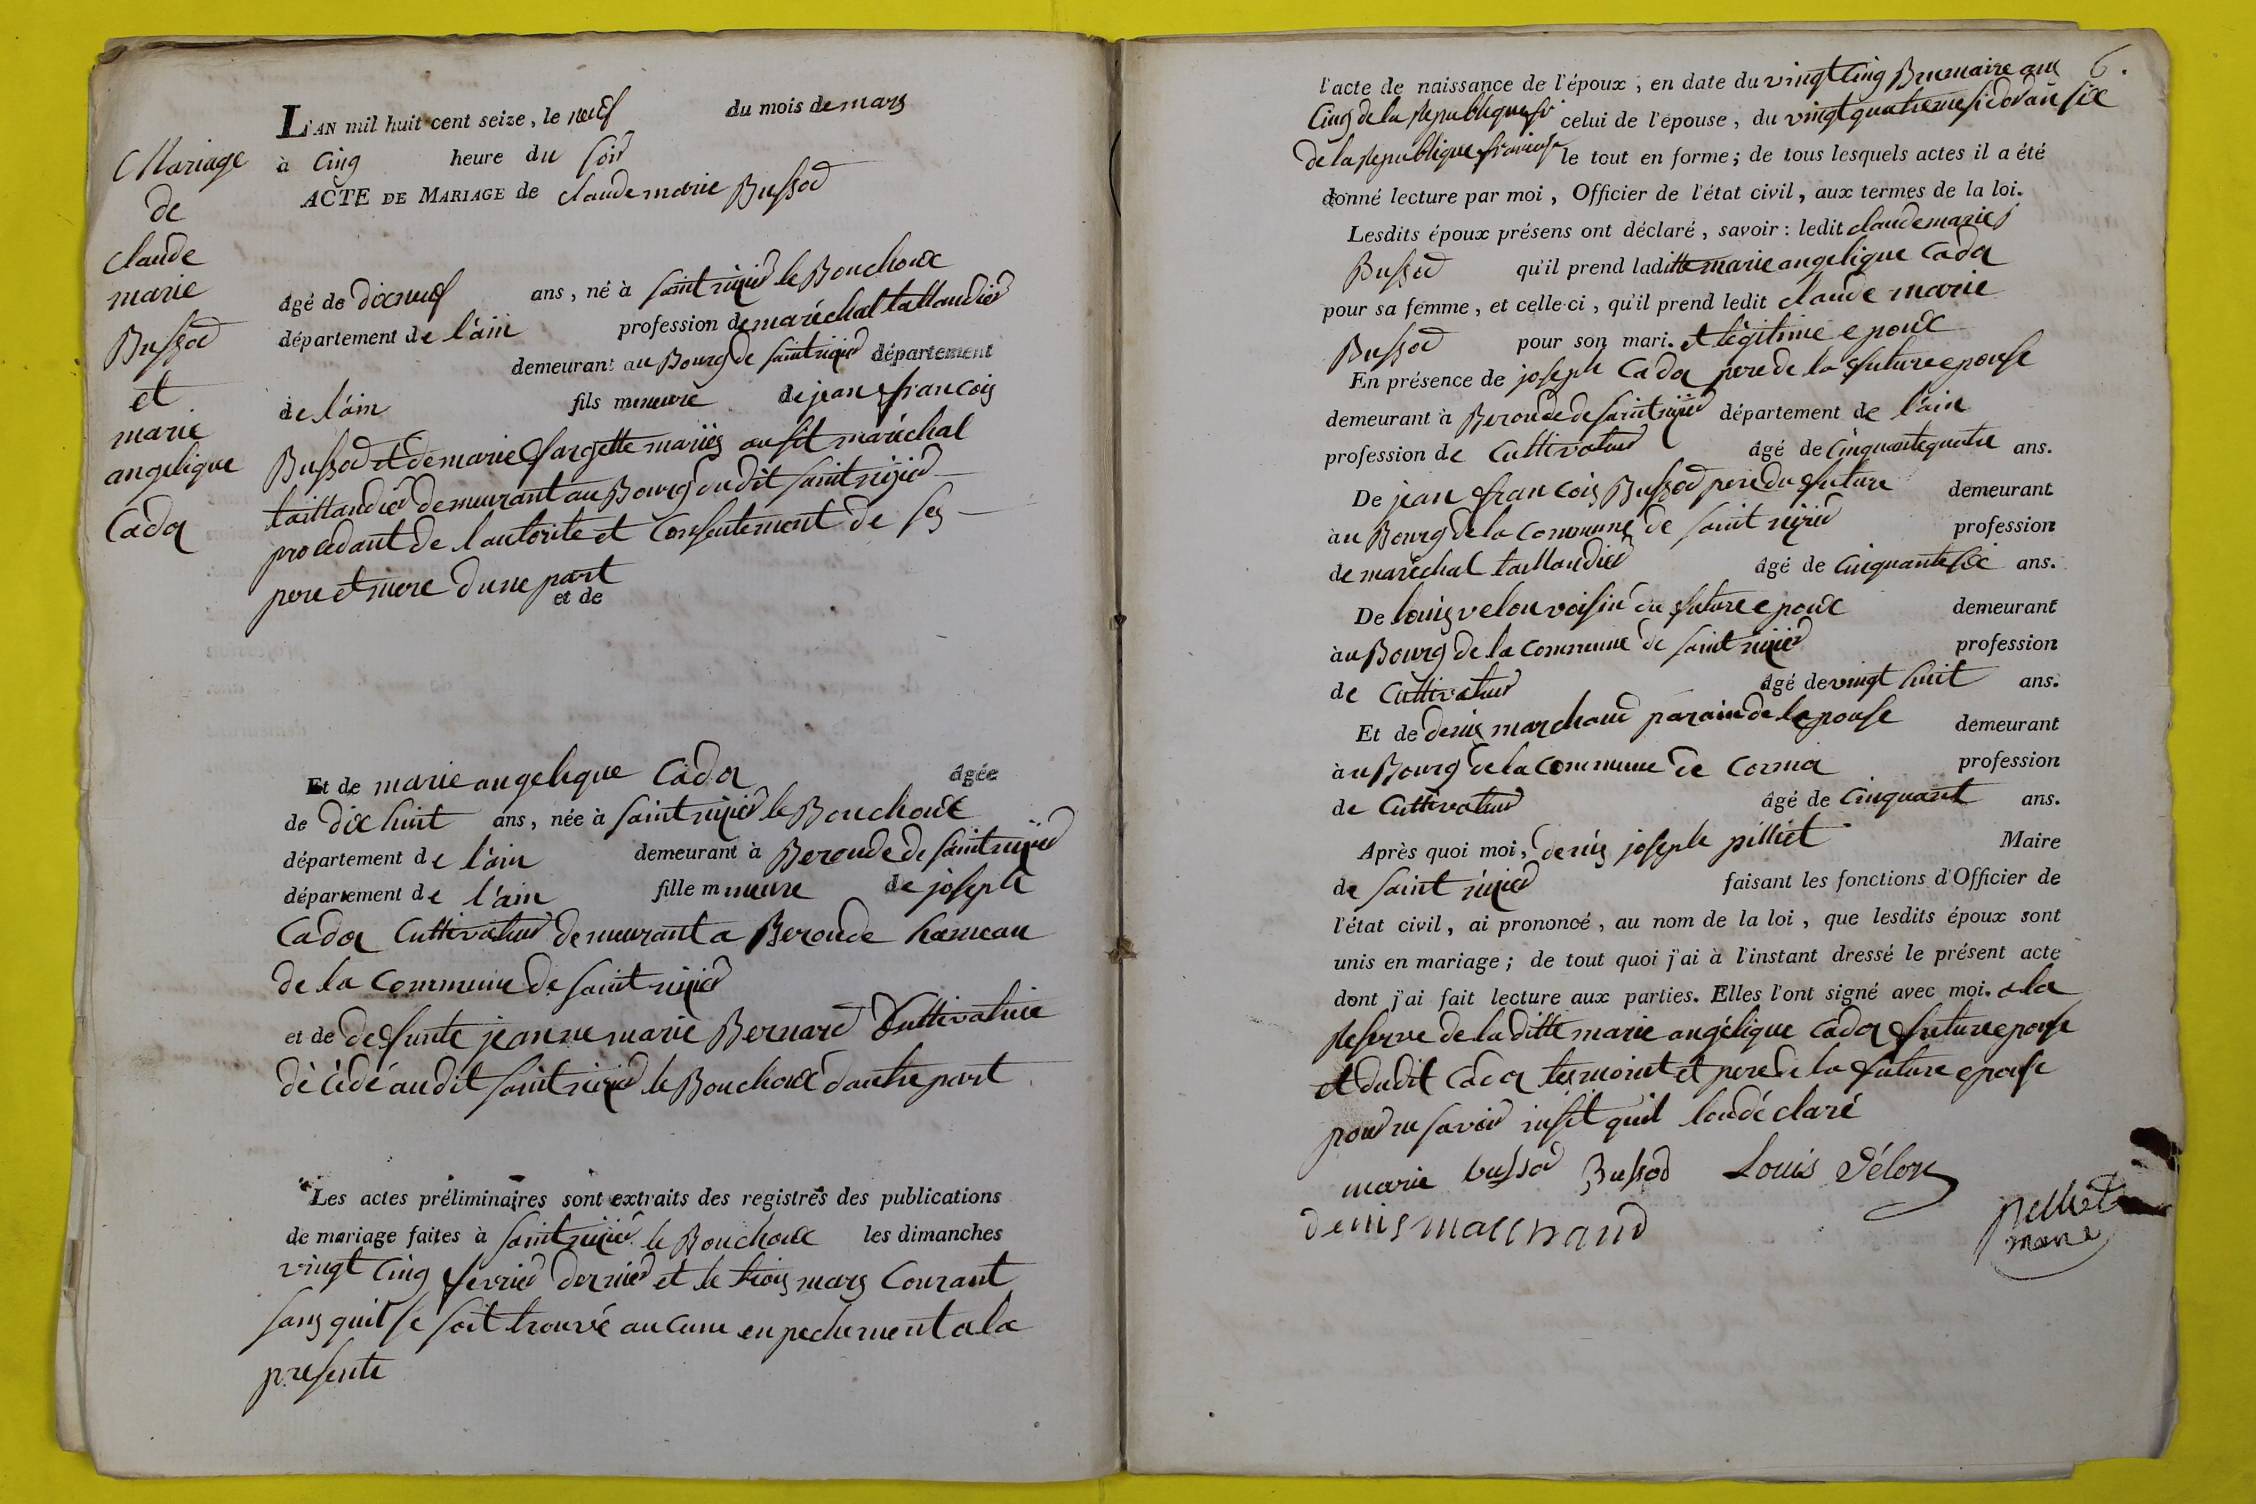 Mariage
de
claude
marie
Bussod
et
marie
angelique
Cadoz
L'AN mil huit cent seize, le neuf du mois de mars
à Cinq heure du soir
ACTE DE MARIAGE de claude marie Bussod
âgé de dixneuf ans, né à saint nizier le Bouchoux
département de l'ain profession de maréchal taillandier
demeurant au Bourg de saint nizier département
de l'ain fils mineure de jean francois
Bussod et de marie fargette mariés ausit maréchal
taillandier demeurant au Bourg dudit saint nizier
procedant de l'autorite et Consentement de ses
pere et mere d'une part
et de
Et de marie angelique Cadoz âgée
de dix huit ans, née à saint nizier le Bouchoux
département de l'ain demeurant à Beroude de saint nizier
département de l'ain fille mineure de joseph
Cadoz Cultivateur demeurant a Beroude hameau
de la Commune de saint nizier
et de defunte jeanne marie Bernard Cultivatrice
dècèdé audit saint nizier le Bouchoux d'autre part
Les actes préliminaires sont extraits des registres des publications
de mariage faites à saint nizier le Bouchoux les dimanches
vingt Cinq fevrier dernier et le trois mars Courant
sans quil se soit trouvé aucune enpechement a la
presente
6.
l'acte de naissance de l'époux, en date du vingt Cinq Brumaire ans
Cinq de la republique celui de l'épouse, du vingt quatre messidor an six
de la republique francaise le tout en forme; de tous lesquels actes il a été
donné lecture par moi, Officier de l'état civil, aux termes de la loi.
Lesdits époux présens ont déclaré, savoir: ledit claude marie
Bussod qu'il prend laditte marie angelique Cadoz
pour sa femme, et celle-ci, qu'il prend ledit claude marie
Bussod pour son mari. et légitime epoux
En présence de joseph Cadoz pere de la future epouse
demeurant à Beroude de saint nizier département de l'ain
profession de Cultivateur âgé de cinquante quatre ans.
De jean francois Bussod pere du future demeurant
à au Bourg de la Commune de saint nizier profession
de maréchal taillandier âgé de cinquante six ans.
De louis velon voisin du future epoux demeurant
à au Bourg de la Commune de saint nizier profession
de Cultivateur âgé de vingt huit ans.
Et de denis marchand parain de lepouse demeurant
à au Bourg de la Commune de Cormoz profession
de Cultivateur âgé de Cinquant ans.
Après quoi moi, denis joseph pilliet Maire
de saint nizier faisant les fonctions d'Officier de
l'état civil, ai prononcé, au nom de la loi, que lesdits époux sont
unis en mariage; de tout quoi j'ai à l'instant dressé le présent acte
dont j'ai fait lecture aux parties. Elles l'ont signé avec moi. a la
reserve de laditte marie angélique Cadoz future epouse
et dudit Cadoz temoint et pere de la future epouse
pour ne savoir insit quil londéclaré
marie bussod Bussod Louis Vélon
denis marchand
pilliet
mere